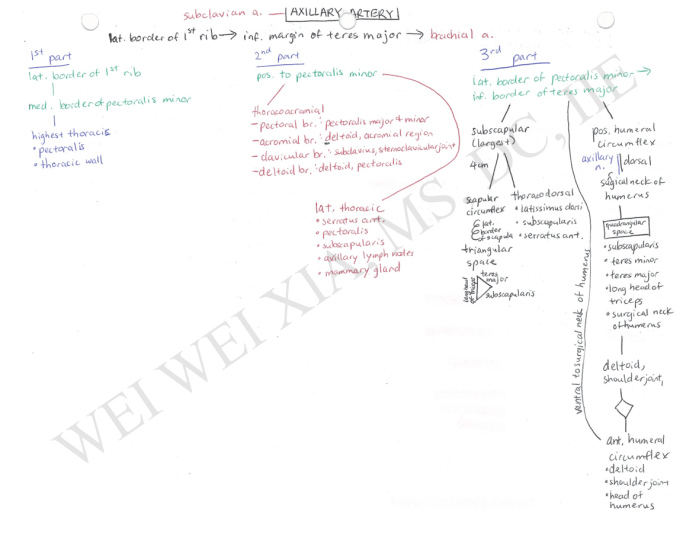 subclavian a. — AXILLARY ARTERY
lat. border of 1st rib → inf. margin of teres major → brachial a.
1st part
lat. border of 1st rib
med. border of pectoralis minor
highest thoracic
• pectoralis
• thoracic wall
2nd part
pos. to pectoralis minor
thoracoacromial
- pectoral br.: pectoralis major & minor
- acromial br.: deltoid, acromial region
- clavicular br.: subclavius, sternoclavicular joint
- deltoid br.: deltoid, pectoralis
lat. thoracic
• serratus ant.
• pectoralis
• subscapularis
• axillary lymph nodes
• mammary gland
3rd part
lat. border of pectoralis minor →
inf. border of teres major
subscapular
(largest)
4cm
scapular
circumflex
lat.
border
of scapula
triangular
space
long head
of triceps
teres
major
subscapularis
thoracodorsal
• latissimus dorsi
• subscapularis
• serratus ant.
pos. humeral
circumflex
axillary
n.
dorsal
sugical neck of
humerus
quadrangular
space
• subscapularis
• teres minor
• teres major
• long head of
triceps
• surgical neck
of humerus
deltoid,
shoulder joint,
ventral to surgical neck of humerus
ant. humeral
circumflex
• deltoid
• shoulder joint
• head of
humerus
WEI WEI XIA, MS, DC, IIE